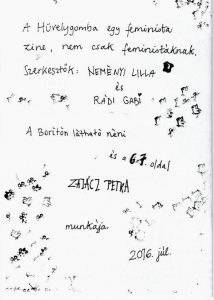 A Hüvelygomba egy feminista
zine, nem csak feministáknak.
Szerkesztők: NEMÉNYI LILLA
és
RÁDI GABI
A Borítón látható néni
és a 6.-7. oldal
ZATÁCZ PETRA
munkája.
2016. júl.